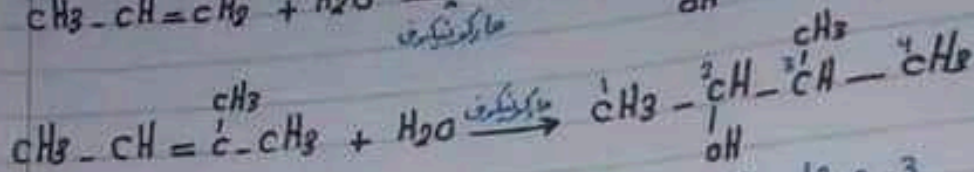 CH3 - CH = CH2 + H2O
ماركونيكوف
OH
CH3 CH3
CH3 - CH = C - CH3 + H2O ماركونيكوف → 1CH3 - 2CH - 3CH - 4CH3
OH
3